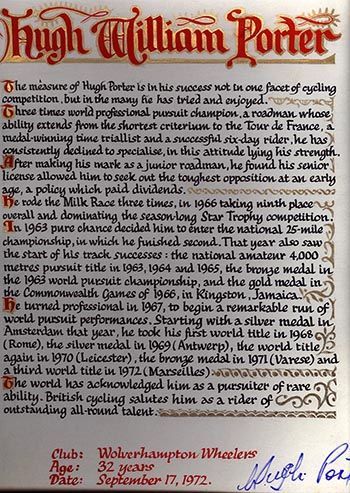 Hugh William Porter
The measure of Hugh Porter is in his success not in one facet of cycling
competition, but in the many he has tried and enjoyed.
Three times world professional pursuit champion, a roadman whose
ability extends from the shortest criterium to the Tour de France, a
medal-winning time triallist and a successful six-day rider, he has
consistently declined to specialise, in this attitude lying his strength.
After making his mark as a junior roadman, he found his senior
license allowed him to seek out the toughest opposition at an early
age, a policy which paid dividends.
He rode the Milk Race three times, in 1966 taking ninth place
overall and dominating the season-long Star Trophy competition.
In 1963 pure chance decided him to enter the national 25-mile
championship, in which he finished second. That year also saw
the start of his track successes: the national amateur 4,000
metres pursuit title in 1963, 1964 and 1965, the bronze medal in
the 1963 world pursuit championship, and the gold medal in
the Commonwealth Games of 1966, in Kingston, Jamaica.
He turned professional in 1967, to begin a remarkable run of
world pursuit performances. Starting with a silver medal in
Amsterdam that year, he took his first world title in 1968
(Rome), the silver medal in 1969 (Antwerp), the world title
again in 1970 (Leicester), the bronze medal in 1971 (Varese) and
a third world title in 1972 (Marseilles).
The world has acknowledged him as a pursuiter of rare
ability. British cycling salutes him as a rider of
outstanding all-round talent.
Club: Wolverhampton Wheelers
Age: 32 years
Date: September 17, 1972.
Hugh Por